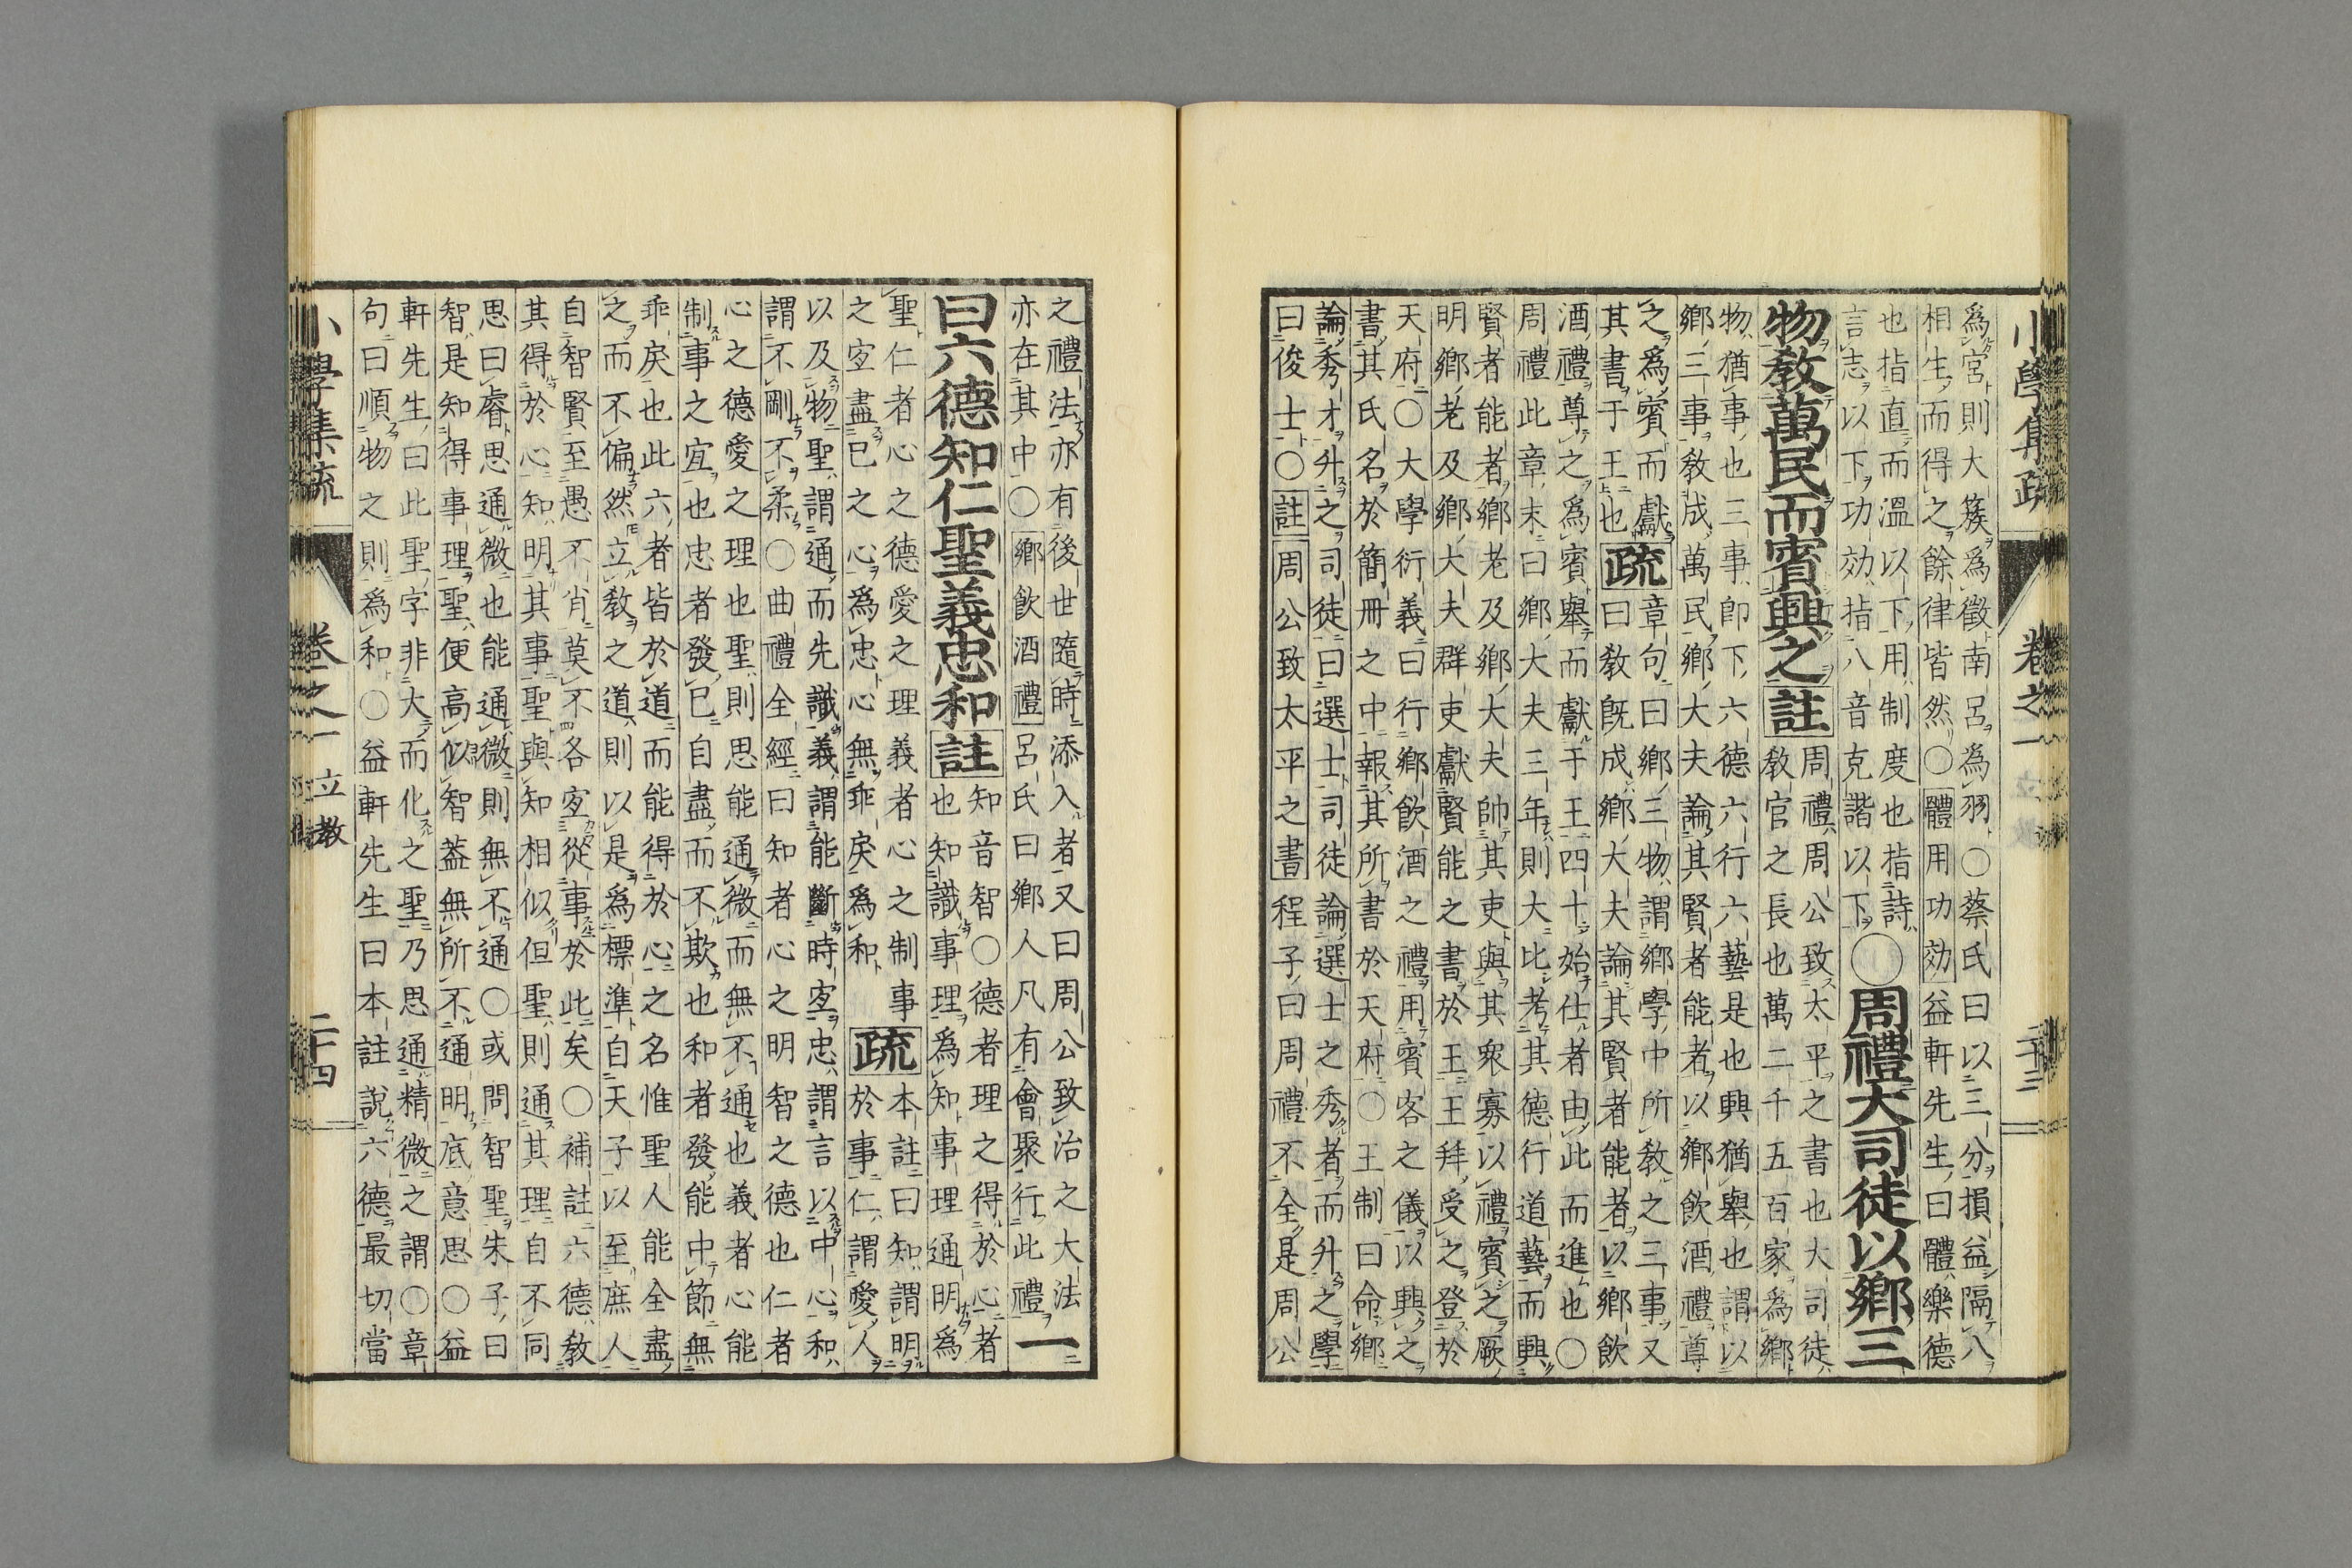 小學集疏 卷之一 二十三
爲宮則大簇爲徵南呂爲羽○蔡氏曰以三分損益隔八
相生而得之餘律皆然○體用功効益軒先生曰體樂德
也指直而溫以下用制度也指詩
言志以下功効指八音克諧以下○周禮大司徒以鄉三
物敎萬民而賓興之註周禮周公致太平之書也大司徒
敎官之長也萬二千五百家爲鄉
物猶事也三事卽下六德六行六藝是也興猶擧也謂以
鄉三事敎成萬民鄉大夫論其賢者能者以鄉飮酒禮尊
之爲賓而獻章句曰鄉三物謂鄉學中所敎之三事又
其書于王也疏曰敎旣成鄉大夫論其賢者能者以鄉飮
酒禮尊之爲賓擧而獻于王四十始仕者由此而進也○
周禮此章末曰鄉大夫三年則大比考其德行道藝而興
賢者能者鄉老及鄉大夫帥其吏與其衆寡以禮賓之厥
明鄉老及鄉大夫群吏獻賢能之書於王王拜受之登於
天府○大學衍義曰行鄉飮酒之禮用賓客之儀以興之
書其氏名於簡冊之中報其所書於天府○王制曰命鄉
論秀才升之司徒曰選士司徒論選士之秀者而升之學
曰俊士○註周公致太平之書程子曰周禮不全是周公
之禮法亦有後世隨時添入者又曰周公致治之大法
亦在其中○鄉飮酒禮呂氏曰鄉人凡有會聚行此禮一
曰六德知仁聖義忠和註知音智○德者理之得於心者
也知識事理爲知事理通明爲
聖仁者心之德愛之理義者心之制事
之宜盡己之心爲忠心無乖戾爲和疏本註曰知謂明
於事仁謂愛人
以及物聖謂通而先識義謂能斷時宜忠謂言以中心和
謂不剛不柔○曲禮全經曰知者心之明智之德也仁者
心之德愛之理也聖則思能通微而無不通也義者心能
制事之宜也忠者發己自盡而不欺也和者發能中節無
乖戾也此六者皆於道而能得於心之名惟聖人能全盡
之而不偏然立敎之道則以是爲標準自天子以至庶人
自智賢至愚不肖莫不各宜從事於此矣○補註六德敎
其得於心知明其事聖與知相似但聖則通其理自不同
思曰睿思通微也能通微則無不通○或問智聖朱子曰
智是知得事理聖便高似智蓋無所不通明底意思○益
軒先生曰此聖字非大而化之聖乃思通精微之謂○章
句曰順物之則爲和○益軒先生曰本註說六德最切當
小學集疏 卷之一 立敎 二十四